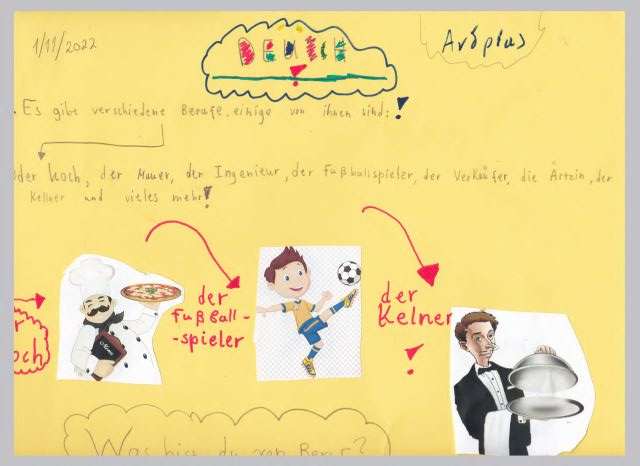 1/11/2022
BERUFE
Ardpras
. Es gibt verschiedene Berufe. einige von ihnen sind:!
der Koch, der Mauer, der Ingenieur, der Fußballspieler, der Verkäufer, die Ärtzin, der
Kellner und vieles mehr!
der
Fußball-
-spieler
der
Kelner
!
och
Menu
Was bist du von Beruf?